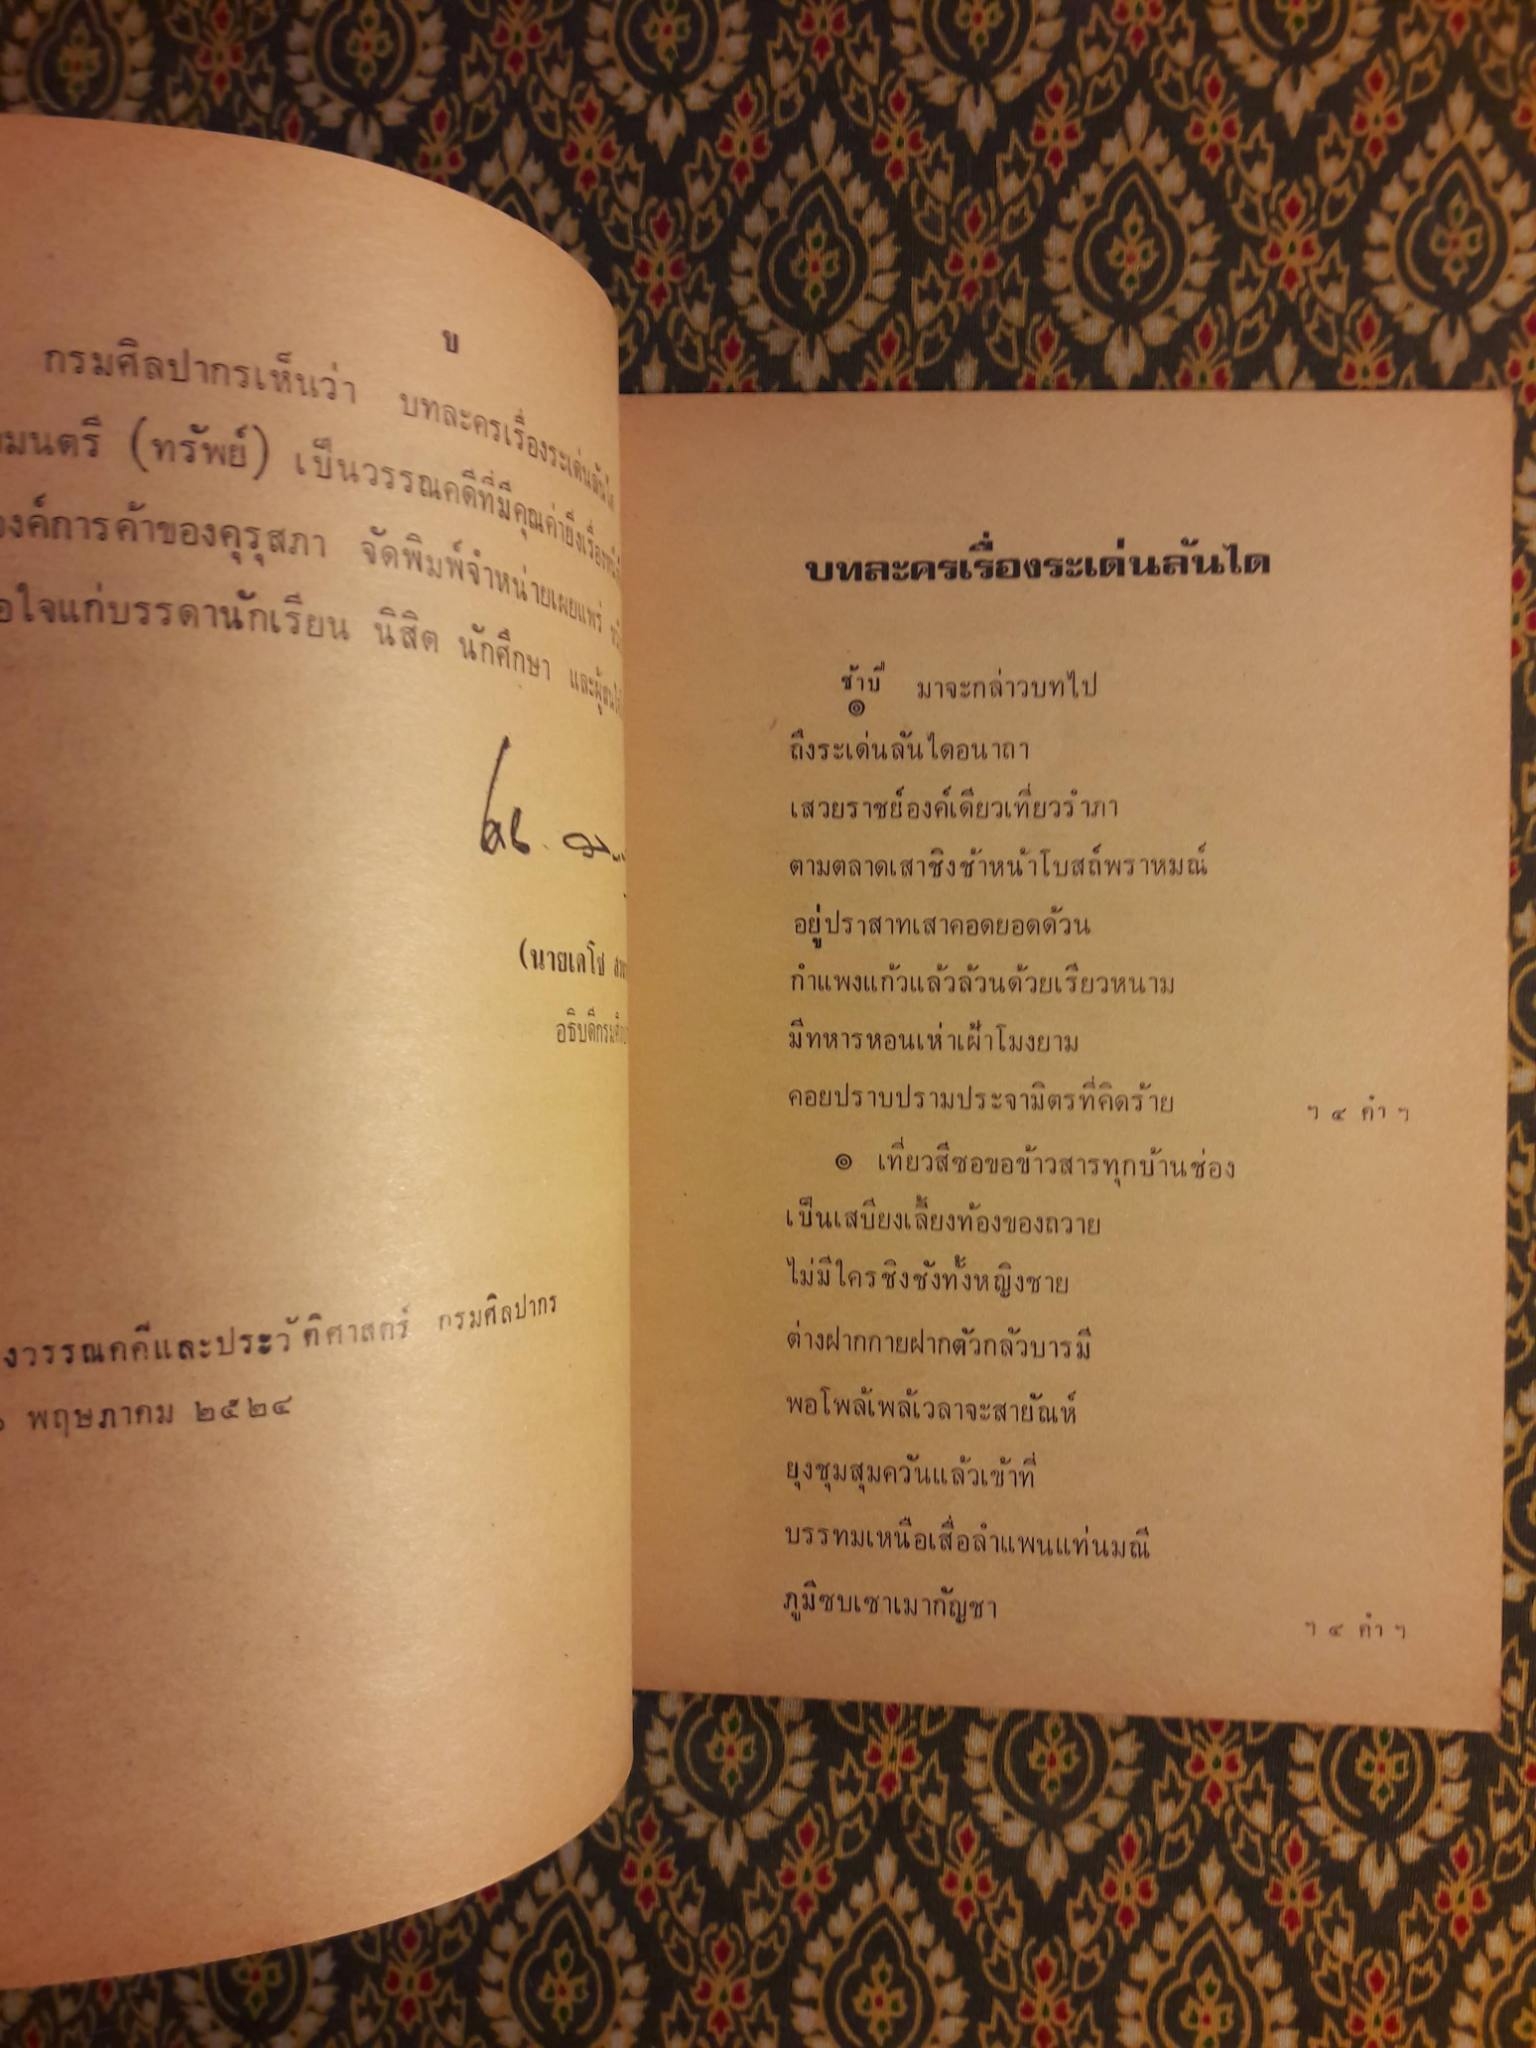 ข
กรมศิลปากรเห็นว่า บทละครเรื่องระเด่นลันได
มนตรี (ทรัพย์) เป็นวรรณคดีที่มีคุณค่ายิ่งเรื่องหนึ่ง
องค์การค้าของคุรุสภา จัดพิมพ์จำหน่ายเผยแพร่
อใจแก่บรรดานักเรียน นิสิต นักศึกษา และผู้สนใจ
(นายเดโช
อธิบดีกรมศิลป
งวรรณคดีและประวัติศาสตร์ กรมศิลปากร
พฤษภาคม ๒๕๒๔
บทละครเรื่องระเด่นลันได
ช้าปี่
๏ มาจะกล่าวบทไป
ถึงระเด่นลันไดอนาถา
เสวยราชย์องค์เดียวเที่ยวรำภา
ตามตลาดเสาชิงช้าหน้าโบสถ์พราหมณ์
อยู่ปราสาทเสาคอดยอดด้วน
กำแพงแก้วแล้วล้วนด้วยเรียวหนาม
มีทหารหอนเห่าเฝ้าโมงยาม
คอยปราบปรามประจามิตรที่คิดร้าย ฯ ๔ คำ ฯ
๏ เที่ยวสีซอขอข้าวสารทุกบ้านช่อง
เป็นเสบียงเลี้ยงท้องของถวาย
ไม่มีใครชิงชังทั้งหญิงชาย
ต่างฝากกายฝากตัวกลัวบารมี
พอโพล้เพล้เวลาจะสายัณห์
ยุงชุมสุมควันแล้วเข้าที่
บรรทมเหนือเสื่อลำแพนแท่นมณี
ภูมีซบเซาเมากัญชา ฯ ๔ คำ ฯ